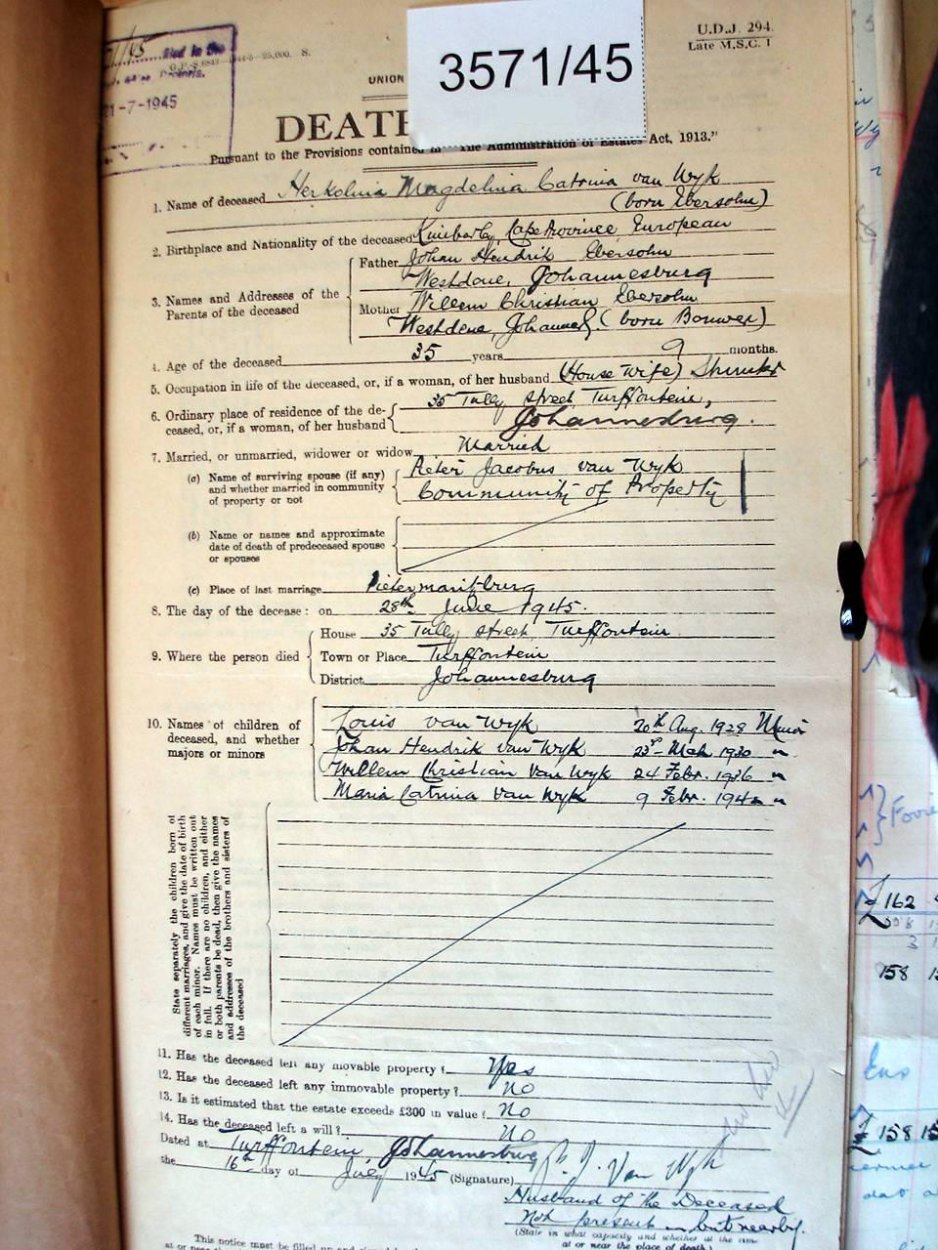 U.D.J. 294.
Late M.S.C. 1
3571/45
UNION
21-7-1945
DEATH
Pursuant to the Provisions contained in "The Administration of Estates Act, 1913."
1. Name of deceased Herkolina Magdelina Catrina van Wyk
(born Ebersohn)
2. Birthplace and Nationality of the deceased Kimberly, Cape Province European
3. Names and Addresses of the Parents of the deceased
Father Johan Hendrik Ebersohn
Westdene, Johannesburg
Mother Willem Christian Ebersohn
Westdene, Johannesb. (born Bouwer)
4. Age of the deceased 35 years 9 months.
5. Occupation in life of the deceased, or, if a woman, of her husband (House Wife)
6. Ordinary place of residence of the de-
ceased, or, if a woman, of her husband
35 Tully street Turffontein,
Johannesburg.
7. Married, or unmarried, widower or widow Married
(a) Name of surviving spouse (if any)
and whether married in community
of property or not
Pieter Jacobus van Wyk
Community of Property
(b) Name or names and approximate
date of death of predeceased spouse
or spouses
(c) Place of last marriage Pietermaritzburg
8. The day of the decease: on 28th June 1945.
9. Where the person died
House 35 Tully street, Turffontein.
Town or Place Turffontein
District Johannesburg
10. Names of children of
deceased, and whether
majors or minors
Louis van Wyk 20th Aug. 1928 Minor
Johan Hendrik van Wyk 23rd Mch 1930 "
Willem Christian van Wyk 24 Febr. 1936 "
Maria Catrina van Wyk 9 Febr. "
State separately the children born of
different marriages, and give the date of birth
of each minor. Names must be written out
in full. If there are no children, and either
or both parents be dead, then give the names
and addresses of the brothers and sisters of
the deceased
11. Has the deceased left any movable property? Yes
12. Has the deceased left any immovable property? No
13. Is it estimated that the estate exceeds £300 in value? No
14. Has the deceased left a will? No
Dated at Turffontein, Johannesburg
the 16th day of July 1945 (Signature) P. J. Van Wyk
Husband of the Deceased
Not present - but nearby.
(State in what capacity and whether at the time
at or near the place of death)
This notice must be filled up and signed
£ 162
158
£ 158 15